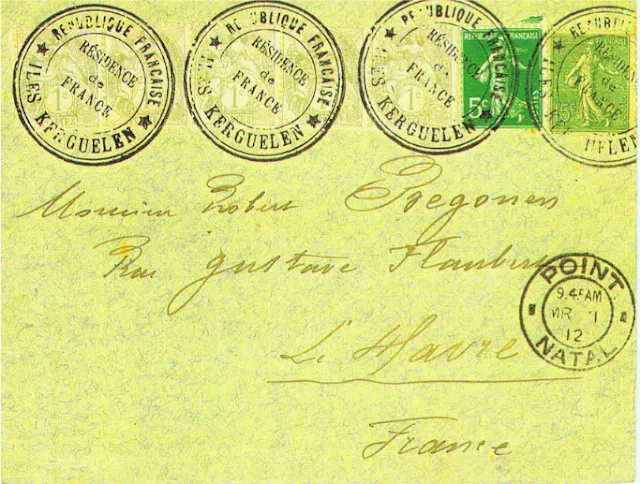 REPUBLIQUE FRANÇAISE
RÉSIDENCE
de
FRANCE
ILES KERGUELEN
REPUBLIQUE FRANÇAISE
RÉSIDENCE
de
FRANCE
ILES KERGUELEN
REPUBLIQUE FRANÇAISE
RÉSIDENCE
de
FRANCE
ILES KERGUELEN
REPUBLIQUE FRANÇAISE
RÉSIDENCE
de
FRANCE
1c
1c
5c
15c
Monsieur Robert
Rue Gustave Flaubert
Le Havre
France
POINT
9.45AM
12
NATAL